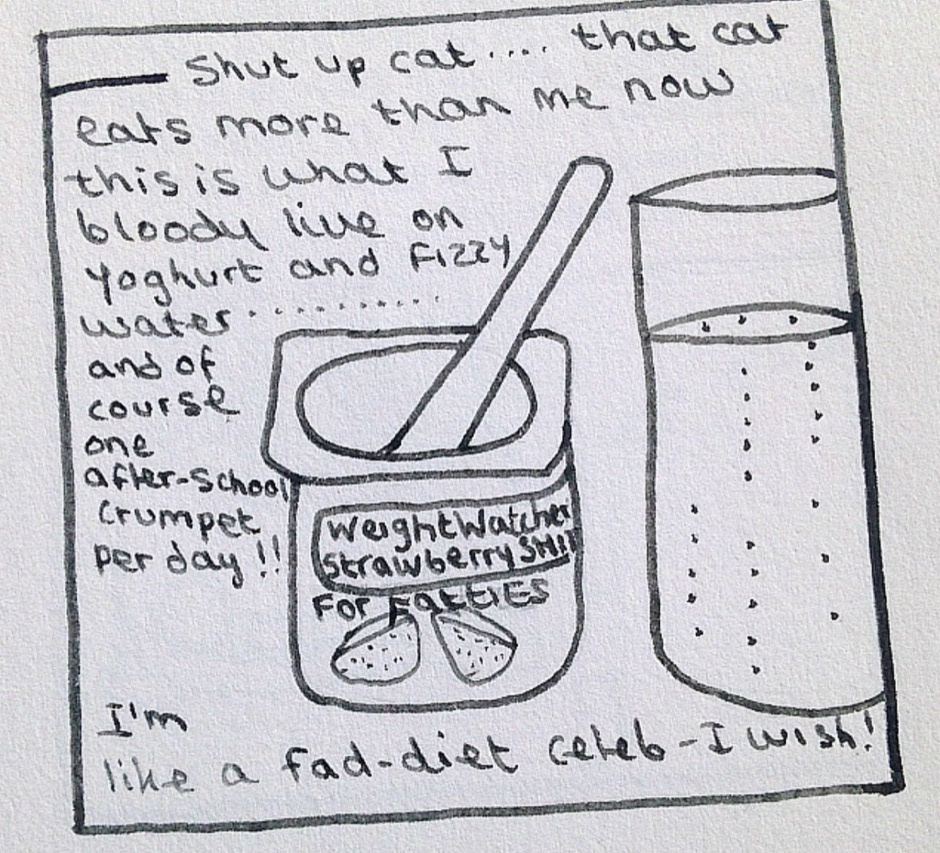 Shut up cat.... that cat
eats more than me now
this is what I
bloody live on
yoghurt and FIZZY
water............
and of
course
one
after-school
crumpet
per day!!
WeightWatcher
Strawberry SHIT
FOR FATTIES
I'm
like a fad-diet celeb-I wish!